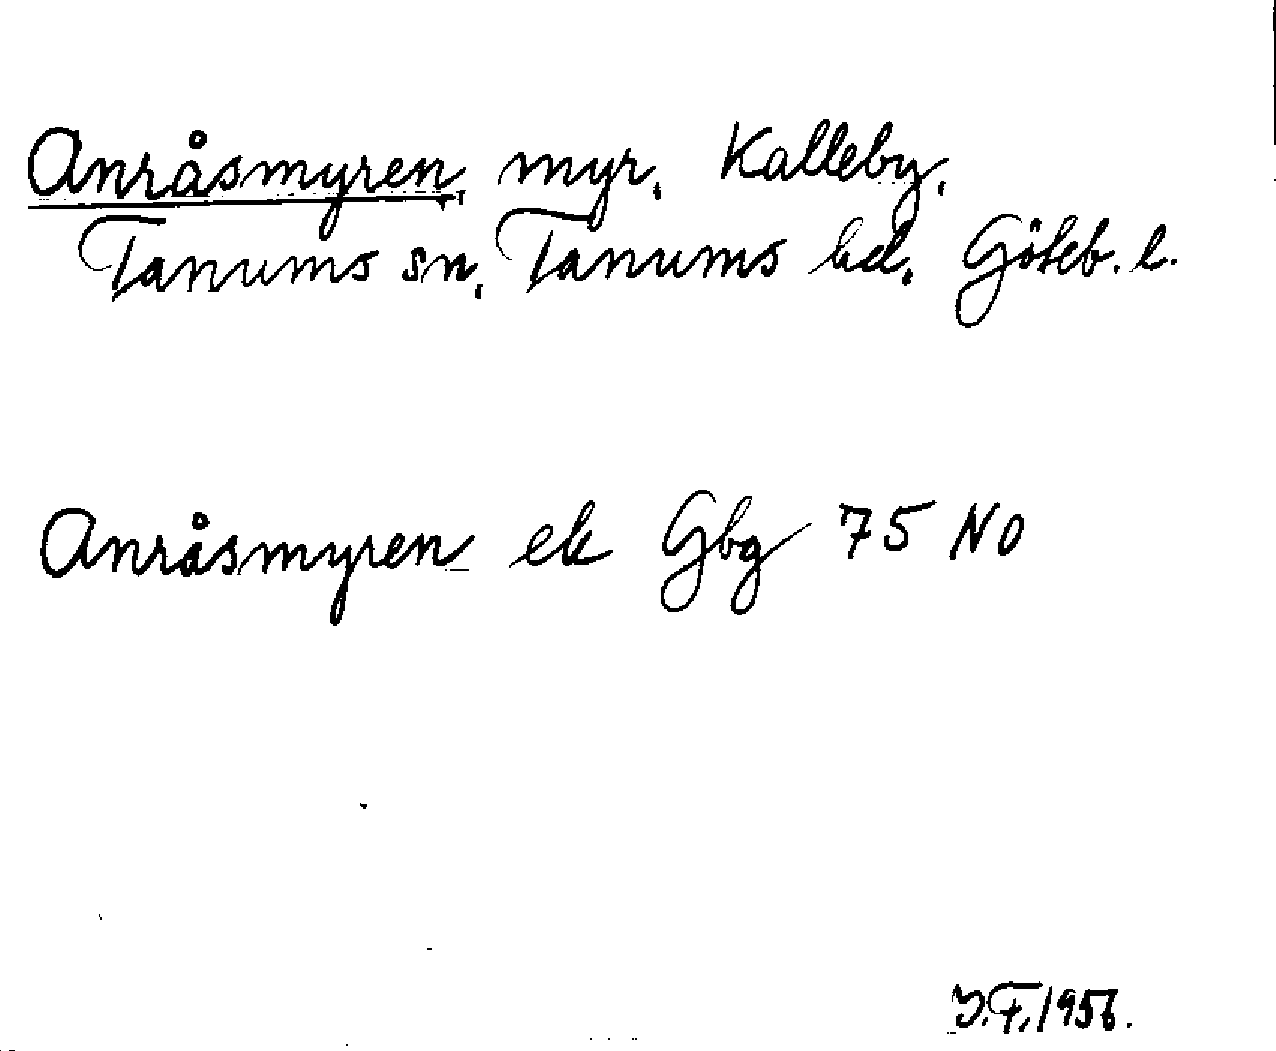 Anråsmyren, myr, Kalleby,
Tanums sn, Tanums hd. Göteb. l.
Anråsmyren ek Gbg 75 NO
J.F. 1956.